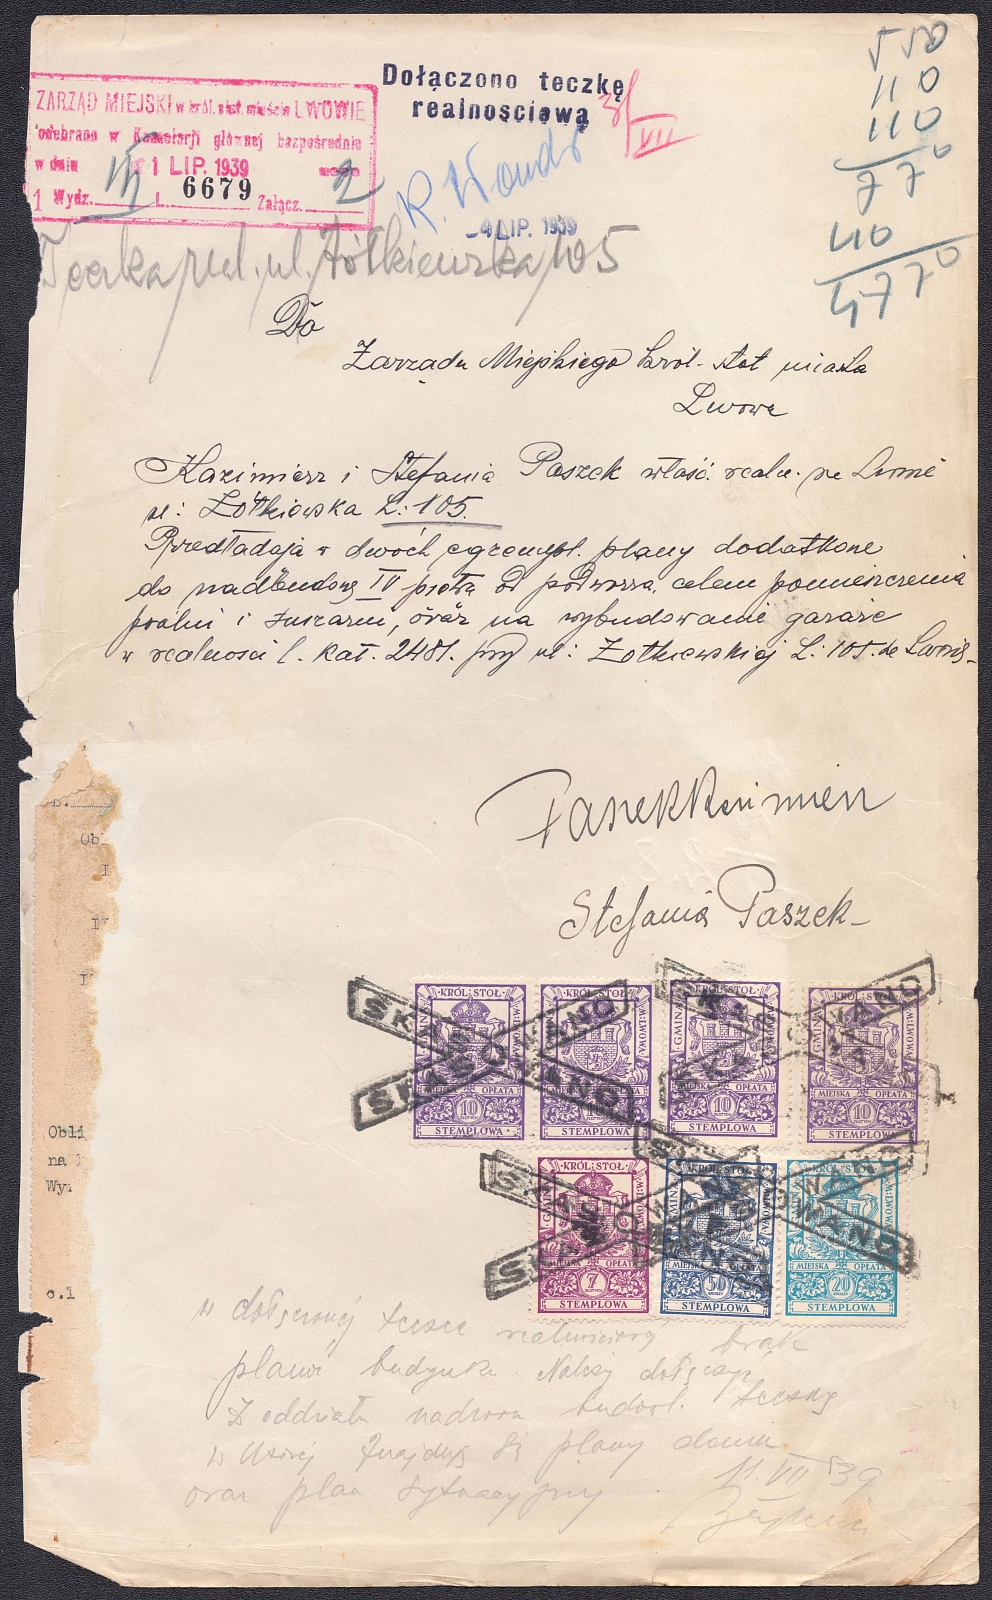 Dołączono teczkę
realnościową
3/VII
ZARZĄD MIEJSKI w król. stoł. mieście LWOWIE
odebrano w Kancelarji głównej bezpośrednio
w dniu 1 LIP. 1939
1 Wydz. L. 6679 Załącz. 2
-4 LIP. 1939
550
110
110
770
40
4770
Teczka real. ul. Żółkiewska 105
Do
Zarządu Miejskiego król. stoł miasta
Lwowa
Kazimierz i Stefania Paszek właśc. realn. we Lwowie
ul: Żółkiewska L: 105.
Przedładają w dwóch egzempl. plany dodatkowe
do nadbudowy IV piętra od podwórza, celem pomieszczenia
pralni i suszarni, oraz na wybudowanie garaże
w realności l. kat. 2481. przy ul: Żółkiewskiej L: 105. we Lwowie
Paszek Kazimierz
Stefania Paszek
Obl
I
Obli
na
Wy
c.l
KRÓL·STOŁ· GMINA M·LWOWA MIEJSKA OPŁATA 10 ZŁOTYCH STEMPLOWA
KRÓL·STOŁ· MIEJSKA OPŁATA 10 STEMPLOWA
KRÓL·STOŁ· MIEJSKA OPŁATA 10 ZŁOTYCH STEMPLOWA
KRÓL·STOŁ· GMINA M·LWOWA MIEJSKA OPŁATA 10 ZŁOTYCH STEMPLOWA
SKASOWANO
SKASOWANO
KRÓL·STOŁ· GMINA MIEJSKA OPŁATA 7 ZŁOTYCH STEMPLOWA
KRÓL·STOŁ· GMINA MIEJSKA OPŁATA 50 GROSZY STEMPLOWA
KRÓL·STOŁ· M·LWOWA MIEJSKA OPŁATA 20 GROSZY STEMPLOWA
w dołączonej teczce realnościowej brak
planu budynku. Należy dołączyć
z oddziału nadzoru budowl. teczkę
w której znajdują się plany domu
oraz plan sytuacyjny
11.VII 39